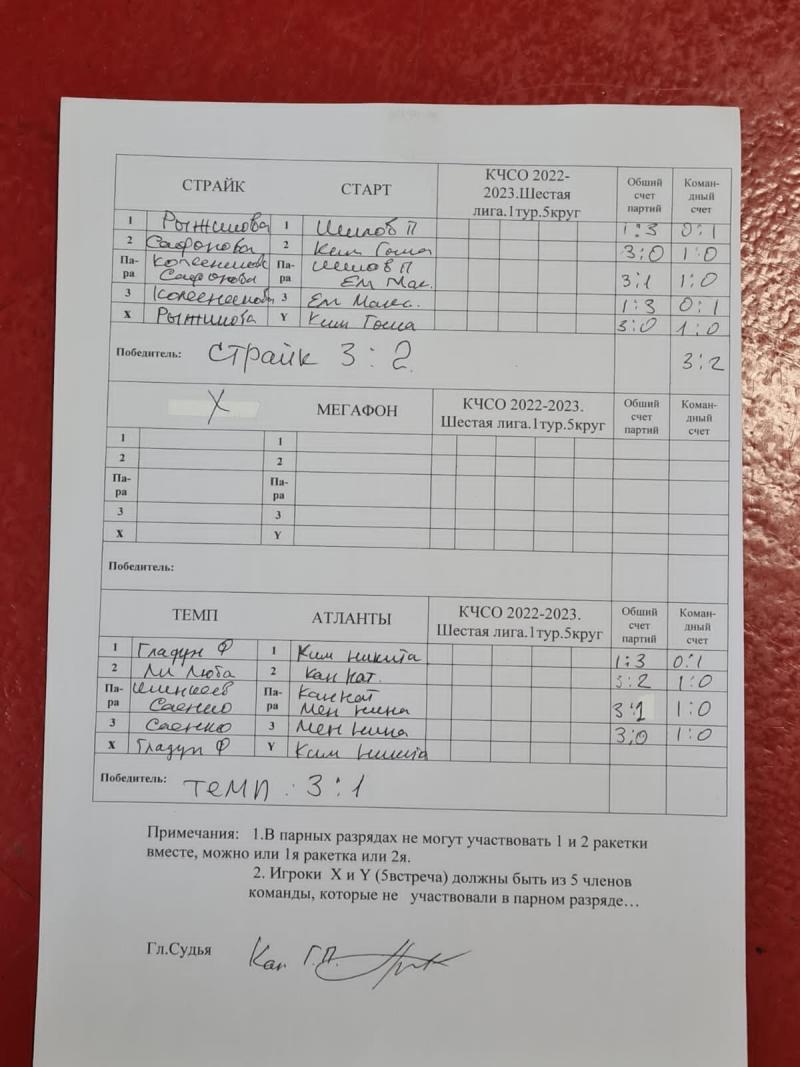 СТРАЙК СТАРТ КЧСО 2022-
2023.Шестая
лига.1тур.5круг Общий
счет
партий Коман-
дный
счет
1 Рыжикова 1 Шилов П 1:3 0:1
2 Сафонова 2 Ким Гоша 3:0 1:0
Па-
ра Сафонова Па-
ра Шилов П
Ем Мак. 3:1 1:0
3 3 Ем Макс. 1:3 0:1
X Рыжикова Y Ким Гоша 3:0 1:0
Победитель: Страйк 3:2 3:2
X МЕГАФОН КЧСО 2022-2023.
Шестая лига.1тур.5круг Общий
счет
партий Коман-
дный
счет
1 1
2 2
Па-
ра Па-
ра
3 3
X Y
Победитель:
ТЕМП АТЛАНТЫ КЧСО 2022-2023.
Шестая лига.1тур.5круг Общий
счет
партий Коман-
дный
счет
1 Гладун Ф 1 Ким Никита 1:3 0:1
2 Ли Люба 2 Кан Кат. 3:2 1:0
Па-
ра Саенко Па-
ра Кан Кат
Мен Нина 3:1 1:0
3 Саенко 3 Мен Нина 3:0 1:0
X Гладун Ф Y Ким Никита
Победитель: Темп 3:1
Примечания: 1.В парных разрядах не могут участвовать 1 и 2 ракетки
вместе, можно или 1я ракетка или 2я.
2. Игроки X и Y (5встреча) должны быть из 5 членов
команды, которые не участвовали в парном разряде…
Гл.Судья Кан Г.П.